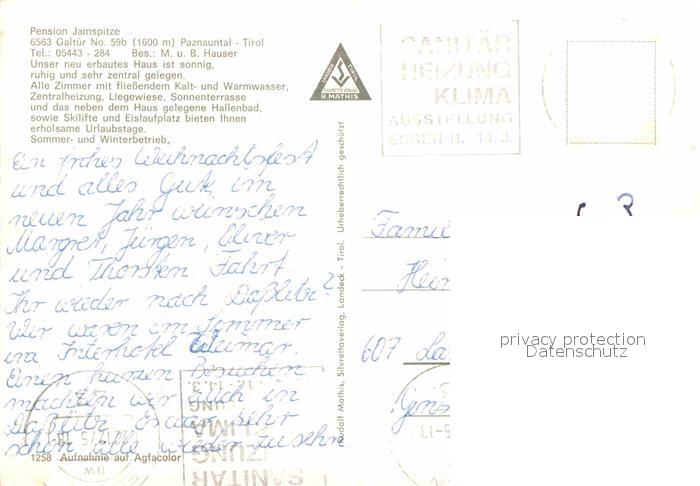 Pension Jamspitze
6563 Galtür No. 59b (1600 m) Paznauntal - Tirol
Tel.: 05443 - 284 Bes.: M. u. B. Hauser
Unser neu erbautes Haus ist sonnig,
ruhig und sehr zentral gelegen.
Alle Zimmer mit fließendem Kalt- und Warmwasser,
Zentralheizung, Liegewiese, Sonnenterrasse
und das neben dem Haus gelegene Hallenbad,
sowie Skilifte und Eislaufplatz bieten Ihnen
erholsame Urlaubstage.
Sommer- und Winterbetrieb.
Ein frohes Weihnachtsfest
und alles Gute im
neuen Jahr wünschen
Margret, Jürgen, Oliver
und Thorsten. Fahrt
Ihr wieder nach Daßlitz?
Wir waren im Sommer
im Interhotel Weimar.
Einen kurzen Besuchen
machten wir auch in
Daßlitz. Es war sehr
schön alle wieder zu sehn
1258 Aufnahme auf Agfacolor
R. MATHIS
Rudolf Mathis, Silvrettaverlag, Landeck - Tirol. Urheberrechtlich geschützt
SANITÄR
HEIZUNG
KLIMA
AUSSTELLUNG
ESSEN 11.-14.3.
Famil
Hein
607 La
privacy protection
Datenschutz
SANITÄR
IZUNG
LIMA
LUNG
-14.3.